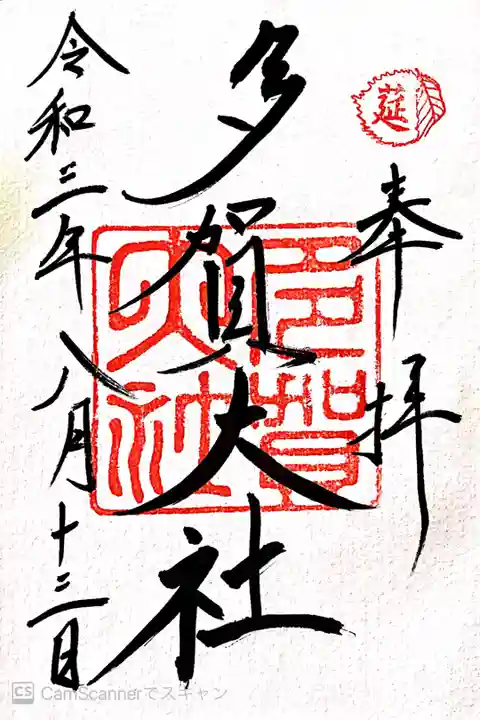 莚
奉拝
多賀大社
多賀
大社
令和三年八月十三日
CS CamScannerでスキャン